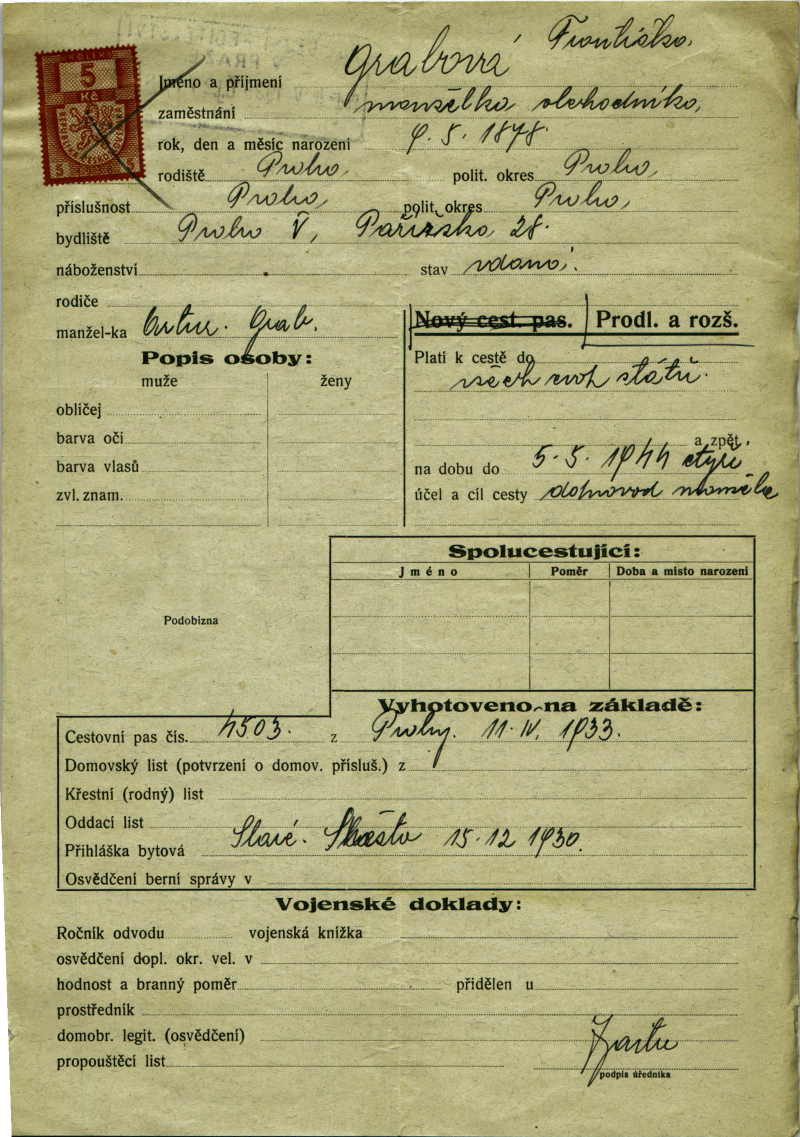 5
Kč
5 5
Grabová Františka,
Jméno a příjmení
zaměstnání manželka obchodníka,
rok, den a měsíc narození 9. 5. 1878.
rodiště Praha, polit. okres Praha,
příslušnost Praha, polit. okres Praha,
bydliště Praha V, Pařížská 28.
náboženství stav vdaná.
rodiče
manžel-ka Artur. Grab.
Nový cest. pas. Prodl. a rozš.
Popis osoby:
muže ženy
obličej
barva očí
barva vlasů
zvl. znam.
Platí k cestě do
všech evr. států.
a zpět.
na dobu do 5. 5. 1944 čtyři
účel a cíl cesty doprovod manžela
Spolucestující:
Jméno Poměr Doba a místo narození
Podobizna
Vyhotoveno na základě:
Cestovní pas čís. 4503. z Prahy. 11. IV. 1933.
Domovský list (potvrzení o domov. přísluš.) z
Křestní (rodný) list
Oddací list
Přihláška bytová Staré. Město 15. 12 1930.
Osvědčení berní správy v
Vojenské doklady:
Ročník odvodu vojenská knížka
osvědčení dopl. okr. vel. v
hodnost a branný poměr přidělen u
prostředník
domobr. legit. (osvědčení)
propouštěcí list
podpis úředníka